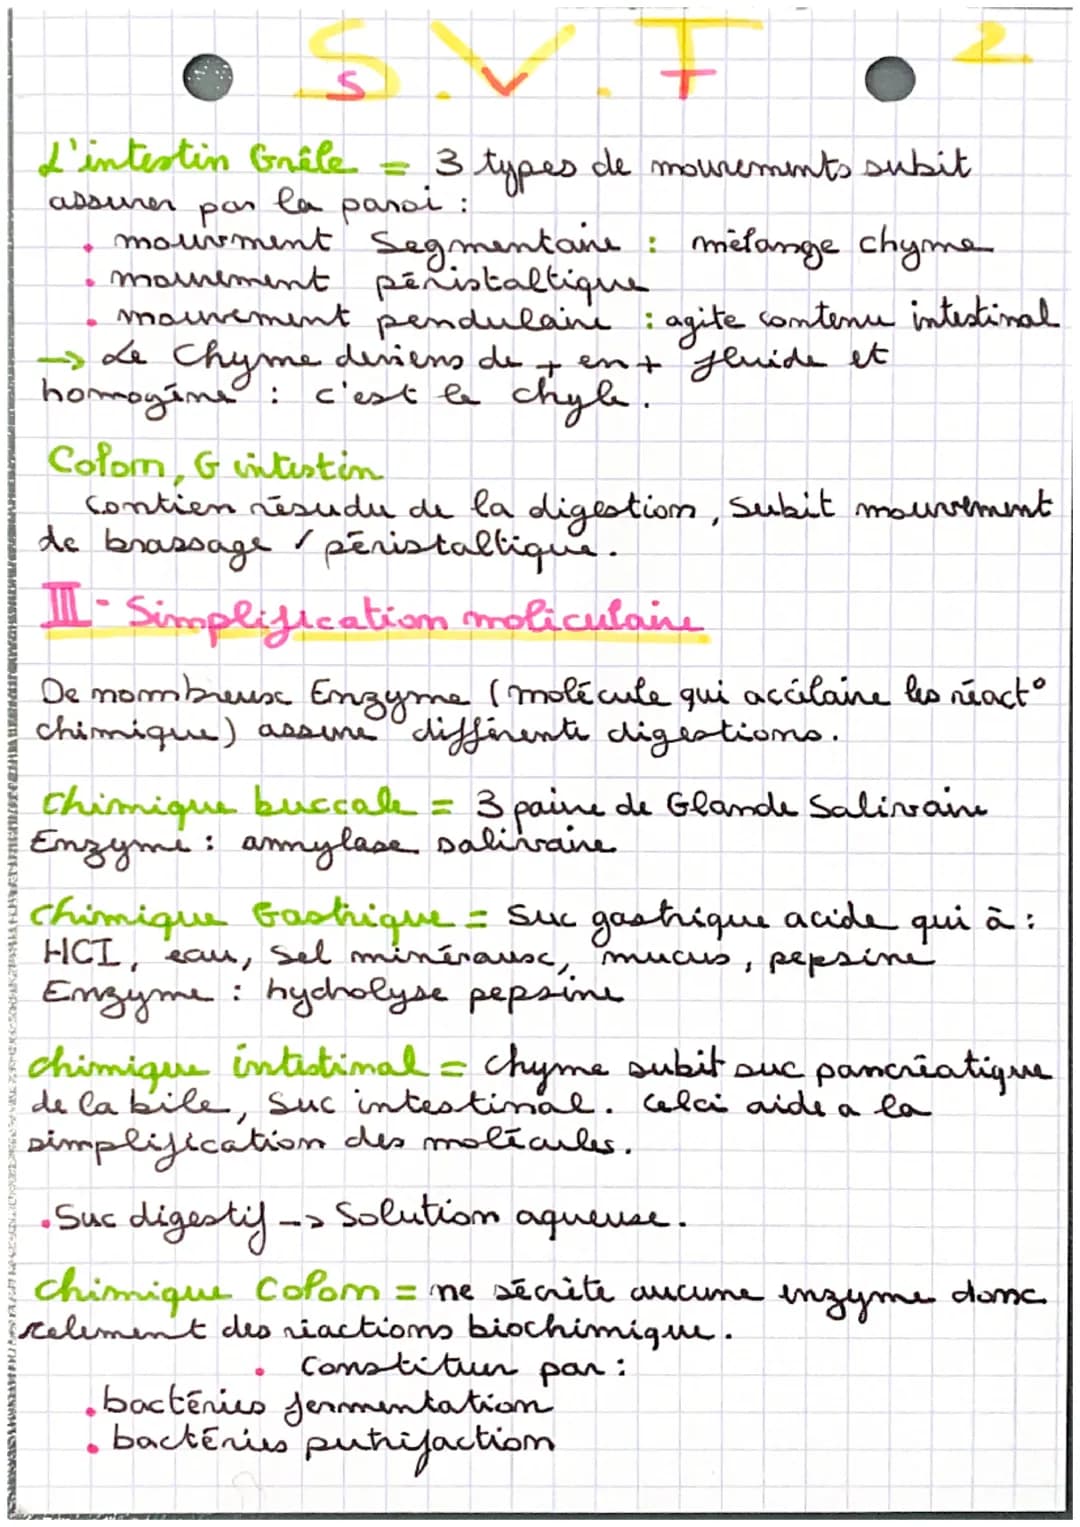 S.V.T 2
S V T
L'intestin Grêle = 3 types de mouvements subit
assurer par la paroi :
• mouvment Segmentaire : mélange chyme
• mouvement péristaltique
• mouvement pendulaire : agite contenu intestinal
→ Le Chyme deviens de + en + fluide et
homogène : c'est le chyle.
Colon, G intestin
Contien résudu de la digestion, subit mouvement
de brassage / péristaltique.
III - Simplification moliculaire
De nombreux Enzyme (molécule qui accélaire les réact°
chimique) assure différente digestions.
Chimique buccale = 3 paire de Glande Salivaire
Enzyme : amylase salivaire
Chimique Gastrique = Suc gastrique acide qui à :
HCI, eau, Sel minéraux, mucus, pepsine
Enzyme : hydrolyse pepsine
chimique intestinal = chyme subit suc pancréatique
de la bile, Suc intestinal. Celci aide a la
simplification des molécules.
• Suc digestif -> Solution aqueuse.
Chimique Colon = ne sécrète aucune enzyme donc
selement des réactions biochimique.
• Constituer par :
• bactéries fermentation
• bactéries putrifaction